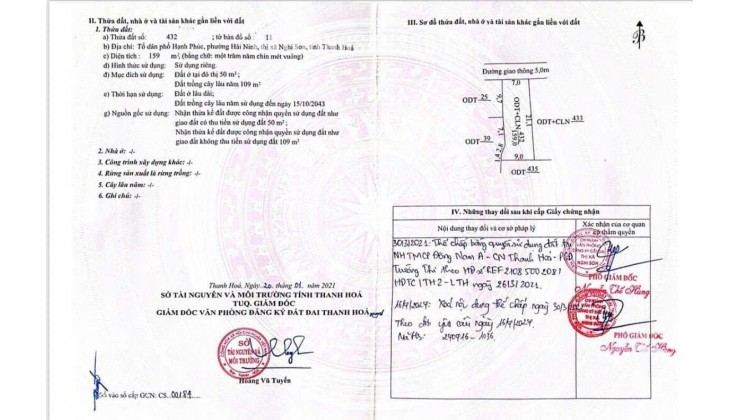 II. Thửa đất, nhà ở và tài sản khác gắn liền với đất
1. Thửa đất:
a) Thửa đất số: 432 ; tờ bản đồ số : 11
b) Địa chỉ: Tổ dân phố Hạnh Phúc, phường Hải Ninh, thị xã Nghi Sơn, tỉnh Thanh Hoá
c) Diện tích : 159 m², (bằng chữ: một trăm năm chín mét vuông)
d) Hình thức sử dụng: Sử dụng riêng.
đ) Mục đích sử dụng: Đất ở tại đô thị 50 m²;
Đất trồng cây lâu năm 109 m²
e) Thời hạn sử dụng: Đất ở lâu dài;
Đất trồng cây lâu năm sử dụng đến ngày 15/10/2043
g) Nguồn gốc sử dụng: Nhận thừa kế đất được công nhận quyền sử dụng đất như
giao đất có thu tiền sử dụng đất 50 m²;
Nhận thừa kế đất được công nhận quyền sử dụng đất như
giao đất không thu tiền sử dụng đất 109 m²
2. Nhà ở: -/-
3. Công trình xây dựng khác: -/-
4. Rừng sản xuất là rừng trồng: -/-
5. Cây lâu năm: -/-
6. Ghi chú: -/-
Thanh Hoá, ngày 20 tháng 01 năm 2021
SỞ TÀI NGUYÊN VÀ MÔI TRƯỜNG TỈNH THANH HOÁ
TUQ. GIÁM ĐỐC
GIÁM ĐỐC VĂN PHÒNG ĐĂNG KÝ ĐẤT ĐAI THANH HOÁ
SỞ
TÀI NGUYÊN VÀ
MÔI TRƯỜNG
Hoàng Vũ Tuyển
Số vào sổ cấp GCN: CS 00184
III. Sơ đồ thửa đất, nhà ở và tài sản khác gắn liền với đất
B
Đường giao thông 5,0m
7,0
ODT 25
ODT+CLN 432
159,0
21,1
ODT+CLN 433
ODT 39
9,0
ODT 435
IV. Những thay đổi sau khi cấp Giấy chứng nhận
Nội dung thay đổi và cơ sở pháp lý
Xác nhận của cơ quan
có thẩm quyền
30/3/2021: Thế chấp bằng quyền sử dụng đất tại
NH TMCP Đông Nam Á - CN Thanh Hoá - PGD
Trường Thi theo HĐ số REF 2108500208/
HĐTC/TH2-LTH ngày 26/3/2021.
16/7/2024: Xoá nội dung thế chấp ngày 30/3/
Theo đơn yêu cầu ngày 16/7/2024.
240716-1036
PHÓ GIÁM ĐỐC
Nguyễn Thế Hùng
PHÓ GIÁM ĐỐC
Nguyễn Thế Hùng